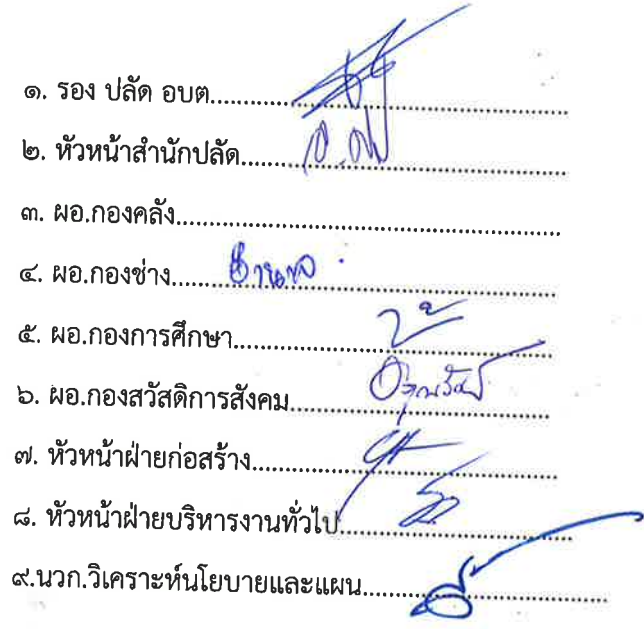 ๑. รอง ปลัด อบต.....................................................
๒. หัวหน้าสำนักปลัด................................................
๓. ผอ.กองคลัง.........................................................
๔. ผอ.กองช่าง.......................................................
๕. ผอ.กองการศึกษา...............................................
๖. ผอ.กองสวัสดิการสังคม......................................
๗. หัวหน้าฝ่ายก่อสร้าง...........................................
๘. หัวหน้าฝ่ายบริหารงานทั่วไป..................................
๙.นวก.วิเคราะห์นโยบายและแผน.....................................